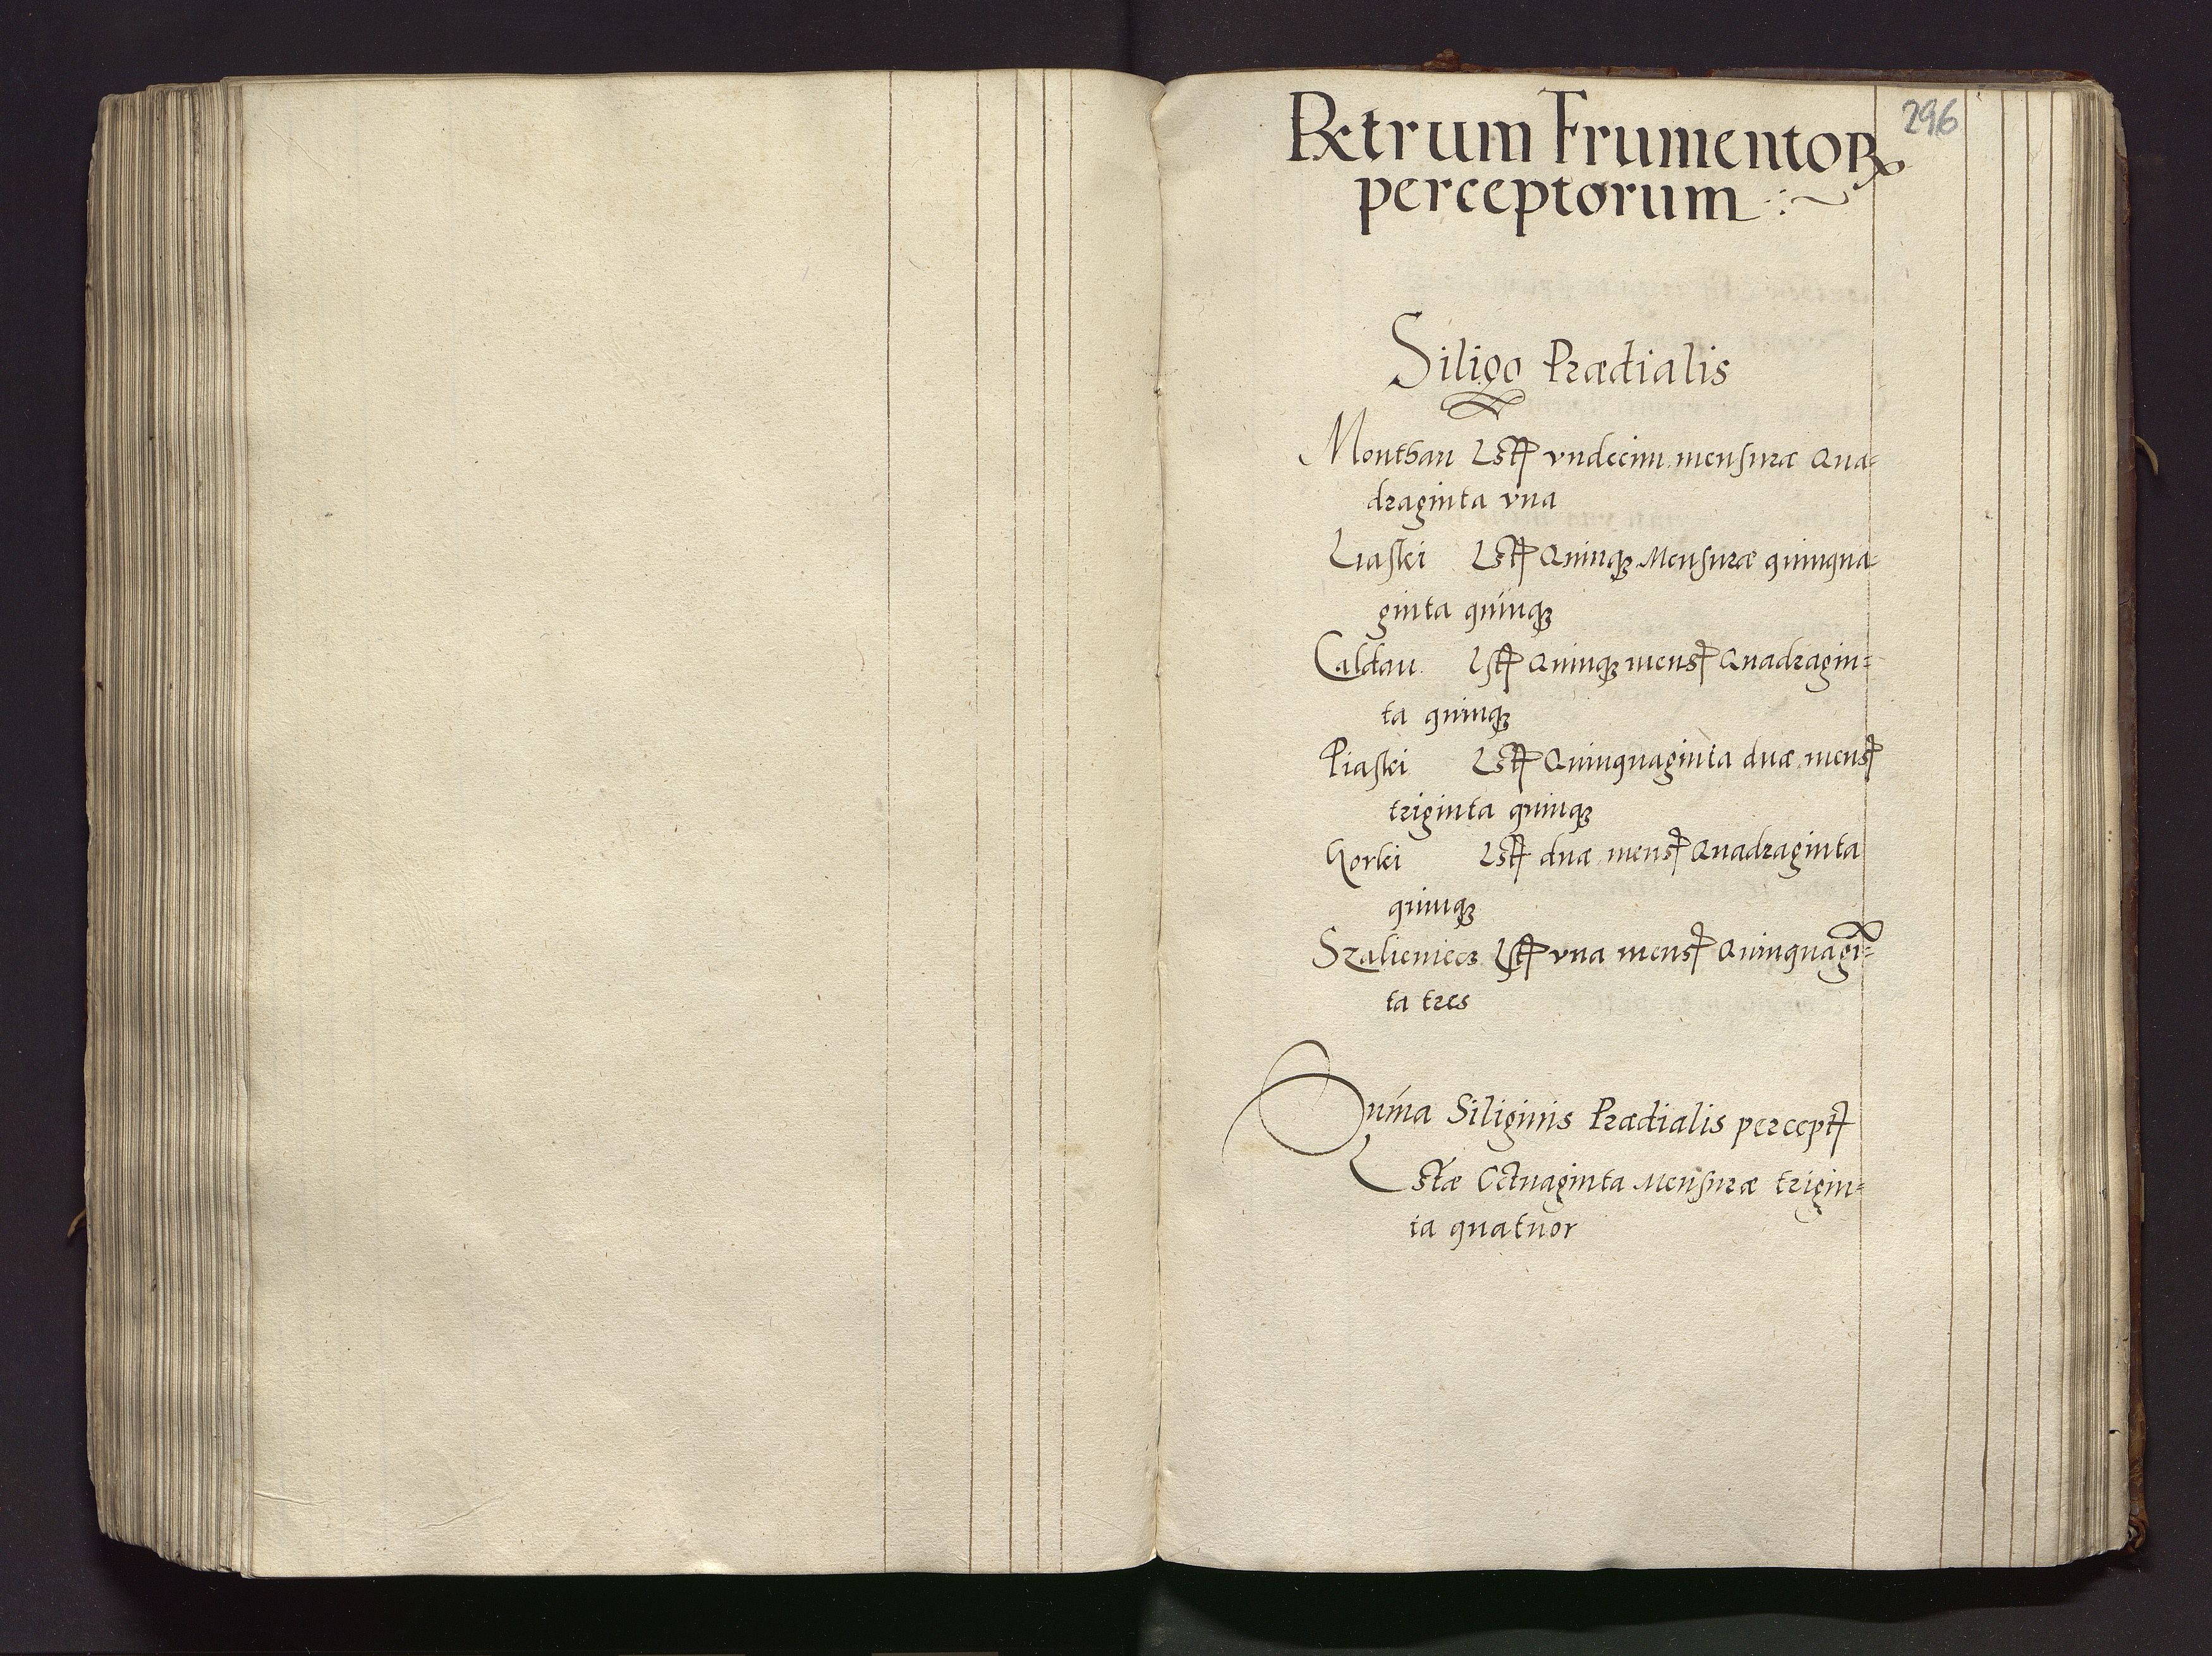 296
Rxtrum Frumentoꝝ
perceptorum
Siligo Prædialis
Montban Lstꝭ vndecim mensuræ Qua=
draginta vna
Liaski Lstꝭ Quinqꝫ Mensuræ quinqua-
ginta quinqꝫ
Caldau Lstꝭ Quinqꝫ mensꝭ Quadragin=
ta quinqꝫ
Piaski Lstꝭ Quinquaginta duæ mensꝭ
triginta quinqꝫ
Gorki Lstꝭ duæ mensꝭ Quadraginta
quinqꝫ
Szalieniecz Lstꝭ vna mensꝭ Quinquagi=
ta tres
Suma Siliginis Prædialis perceptꝭ
Lstæ Octuaginta Mensuræ trigin=
ta quatuor